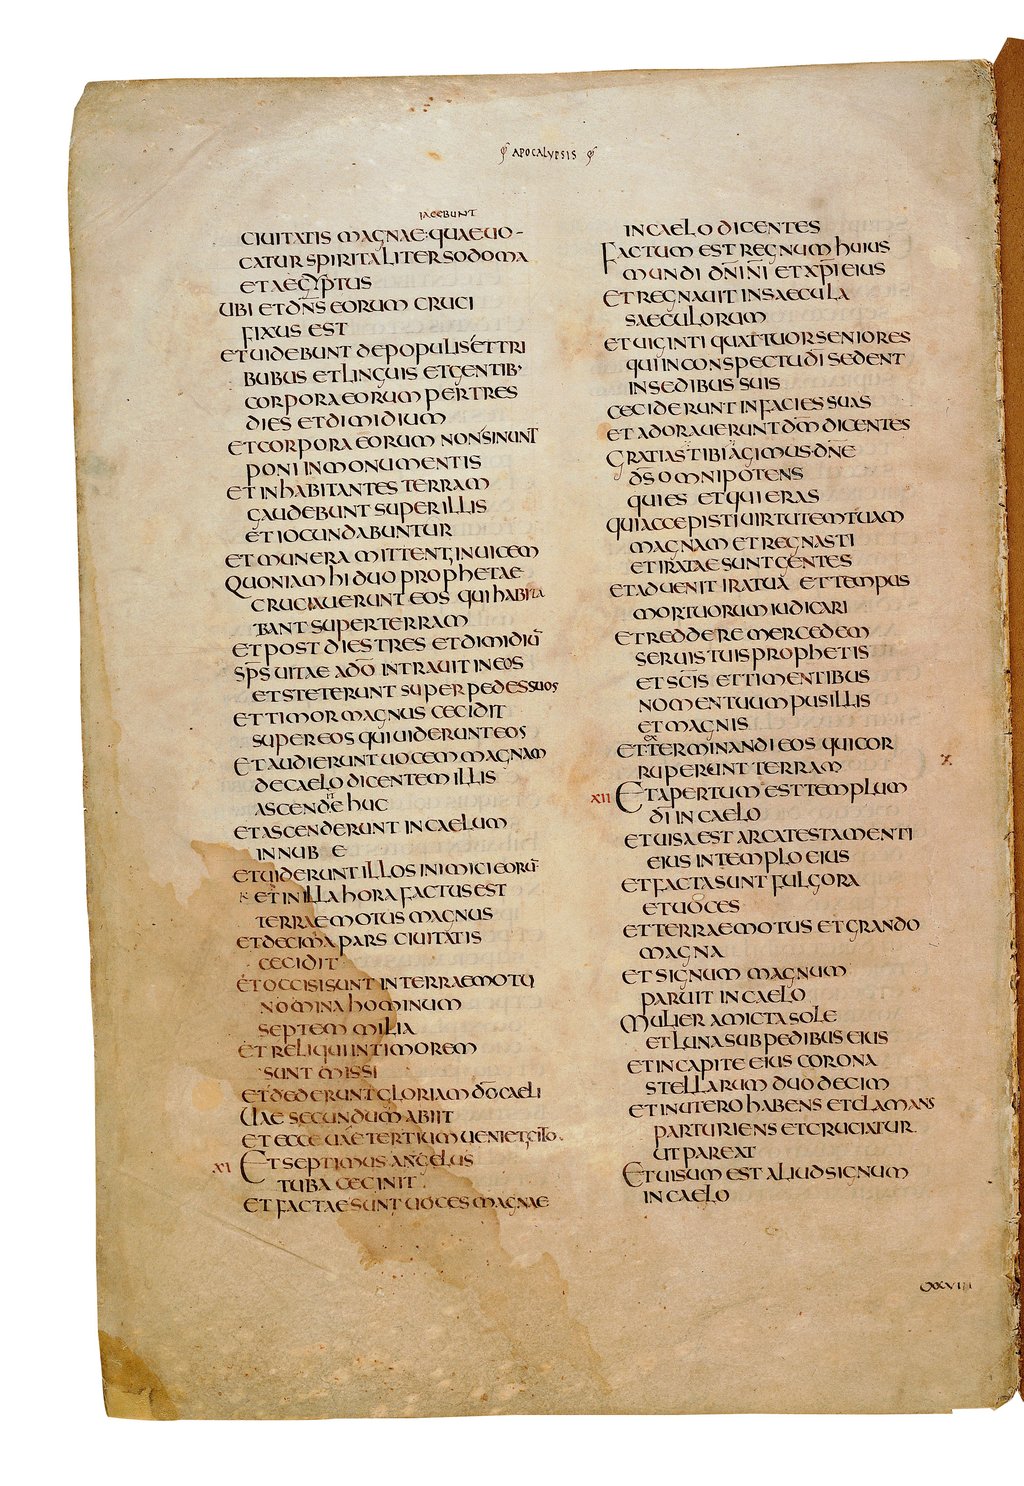 APOCALYPSIS
IACEBUNT
CIUITATIS MAGNAE·QUAE UO-
CATUR SPIRITALITER SODOMA
ET AEGYPTUS
UBI ET DN̄S EORUM CRUCI
FIXUS EST
ET UIDEBUNT DE POPULIS ET TRI
BUBUS ET LINGUIS ET GENTIB'
CORPORA EORUM PER TRES
DIES ET DIMIDIUM
ET CORPORA EORUM NON SINUNT
PONI IN MONUMENTIS
ET INHABITANTES TERRAM
GAUDEBUNT SUPER ILLIS
ET IOCUNDABUNTUR
ET MUNERA MITTENT INUICEM
QUONIAM HI DUO PROPHETAE
CRUCIAUERUNT EOS QUI HABITA
BANT SUPER TERRAM
ET POST DIES TRES ET DIMIDIŪ
SP̄S UITAE A DŌ INTRAUIT IN EOS
ET STETERUNT SUPER PEDES SUOS
ET TIMOR MAGNUS CECIDIT
SUPER EOS QUI UIDERUNT EOS
ET AUDIERUNT UOCEM MAGNAM
DE CAELO DICENTEM ILLIS
ASCENDE HUC
ET ASCENDERUNT IN CAELUM
IN NUBE
ET UIDERUNT ILLOS INIMICI EORŪ
ET IN ILLA HORA FACTUS EST
TERRAEMOTUS MAGNUS
ET DECIMA PARS CIUITATIS
CECIDIT
ET OCCISI SUNT IN TERRAEMOTU
NOMINA HOMINUM
SEPTEM MILIA
ET RELIQUI IN TIMOREM
SUNT MISSI
ET DEDERUNT GLORIAM DŌ CAELI
UAE SECUNDUM ABIIT
ET ECCE UAE TERTIUM UENIET CITO.
XI ET SEPTIMUS ANGELUS
TUBA CECINIT
ET FACTAE SUNT UOCES MAGNAE
IN CAELO DICENTES
FACTUM EST REGNUM HUIUS
MUNDI DN̄I N̄I ET XP̄I EIUS
ET REGNAUIT IN SAECULA
SAECULORUM
ET UIGINTI QUATTUOR SENIORES
QUI IN CONSPECTU DI SEDENT
IN SEDIBUS SUIS
CECIDERUNT IN FACIES SUAS
ET ADORAUERUNT DM̄ DICENTES
GRATIAS TIBI AGIMUS·DN̄E
DS̄ OMNIPOTENS
QUI ES ET QUI ERAS
QUI ACCEPISTI UIRTUTEM TUAM
MAGNAM ET REGNASTI
ET IRATAE SUNT GENTES
ET ADUENIT IRA TUA ET TEMPUS
MORTUORUM IUDICARI
ET REDDERE MERCEDEM
SERUIS TUIS PROPHETIS
ET SC̄IS ET TIMENTIBUS
NOMEN TUUM PUSILLIS
ET MAGNIS
ET EXTERMINANDI EOS QUI COR
RUPERUNT TERRAM
XII ET APERTUM EST TEMPLUM
DĪ IN CAELO
ET UISA EST ARCA TESTAMENTI
EIUS IN TEMPLO EIUS
ET FACTA SUNT FULGORA
ET UOCES
ET TERRAEMOTUS ET GRANDO
MAGNA
ET SIGNUM MAGNUM
PARUIT IN CAELO
MULIER AMICTA SOLE
ET LUNA SUB PEDIBUS EIUS
ET IN CAPITE EIUS CORONA
STELLARUM DUODECIM
ET IN UTERO HABENS ET CLAMANS
PARTURIENS ET CRUCIATUR
UT PAREAT
ET UISUM EST ALIUD SIGNUM
IN CAELO